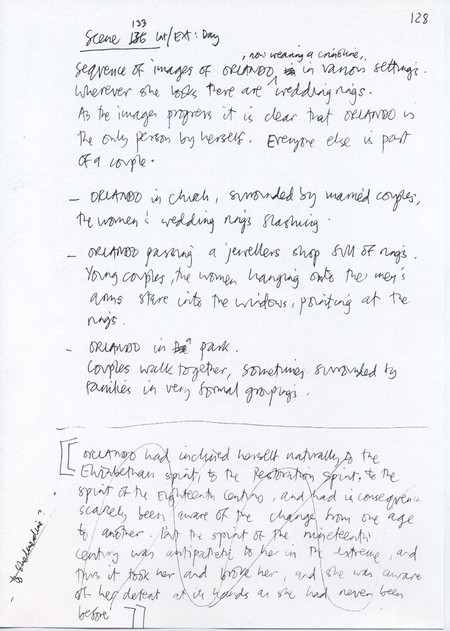 128
133
Scene 136 Int/Ext: Day
, now wearing a crinoline,
Sequence of images of ORLANDO in in various settings.
Wherever she looks there are wedding rings.
As the images progress it is clear that ORLANDO is
the only person by herself. Everyone else is part
of a couple.
– ORLANDO in church, surrounded by married couples,
the women's wedding rings flashing.
– ORLANDO passing a jewellers shop full of rings.
Young couples, the women hanging onto the men's
arms stare into the windows, pointing at the
rings.
– ORLANDO in a park.
Couples walk together, sometimes surrounded by
families in very formal groupings.
[ORLANDO had inclined herself naturally to the
Elizabethan spirit, to the Restoration spirit, to the
spirit of the eighteenth century, and had in consequence
scarcely been aware of the change from one age
to another. But the spirit of the nineteenth
century was antipathetic to her in the extreme, and
thus it took her and broke her, and she was aware
of her defeat at its hands as she had never been
before]